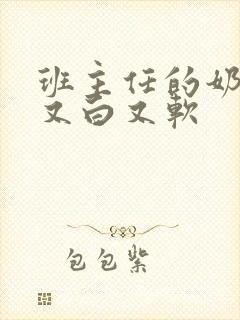 班主任的奶
又白又软
包包紫